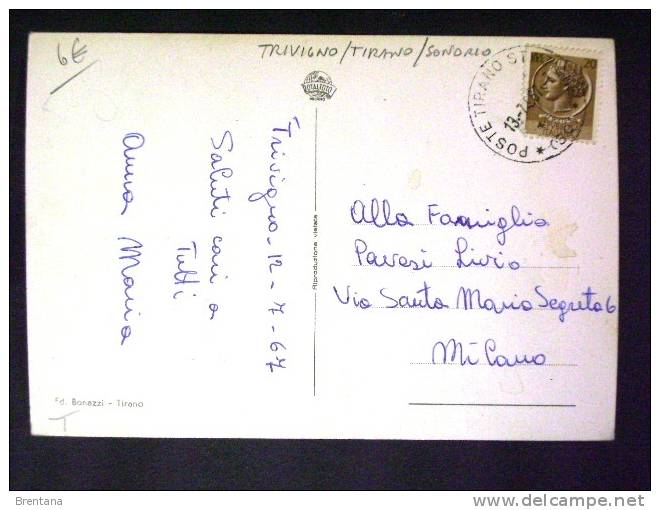 6€
TRIVIGNO/TIRANO/SONDRIO
POSTE TIRANO
20
Trivigno - 12 - 7 - 67
Saluti cari a
Tutti
Anna Maria
Riproduzione vietata
Alla Famiglia
Pavesi Livio
Via Santa Maria Segreta 6
Milano
Ed. Bonazzi - Tirano
T
Brentana
delcampe.net